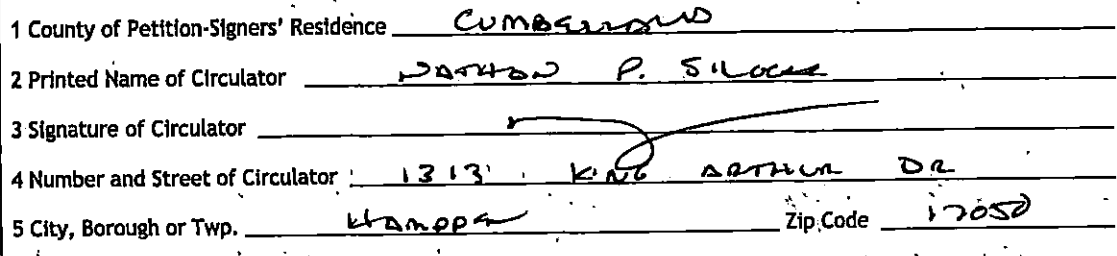 1 County of Petition-Signers' Residence CUMBERLAND
2 Printed Name of Circulator NATHAN P. SILCOX
3 Signature of Circulator
4 Number and Street of Circulator 1313 KING ARTHUR DR
5 City, Borough or Twp. HAMPDEN Zip Code 17050